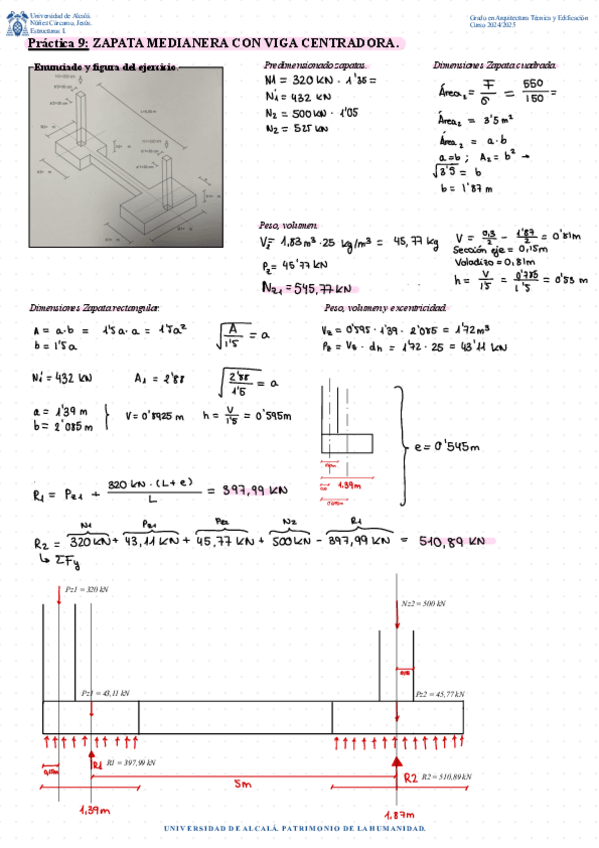 Universidad de Alcalá.
Núñez Cárcamo, Jesús.
Estructuras I.
Grado en Arquitectura Técnica y Edificación
Curso 2024/2025
Práctica 9: ZAPATA MEDIANERA CON VIGA CENTRADORA.
Enunciado y figura del ejercicio.
Predimensionado zapatas.
N1 = 320 KN · 1'35 =
N1' = 432 KN
N2 = 500 KN · 1'05
N2 = 525 KN
Dimensiones Zapata cuadrada.
Área2 = F/σ = 550/150 =
Área2 = 3'5 m²
Área2 = a·b
a=b ; A2 = b² →
√3'5 = b
b = 1'87 m
Peso, volumen.
V2 = 1,83 m³ · 25 kg/m³ = 45,77 kg
P2 = 45'77 KN
Nz1 = 545,77 KN
V = 0,3/2 - 1'87/2 = 0'81m
Sección eje = 0,15m
Voladizo = 0,81m
h = V/1'5 = 0'785/1'5 = 0'53 m
Dimensiones Zapata rectangular.
A = a·b = 1'5a·a = 1'5a²
b = 1'5a
√A/1'5 = a
N1' = 432 KN
A1 = 2'88
√2'88/1'5 = a
a = 1'39 m
b = 2'085 m
V = 0'8925 m
h = V/1'5 = 0'595m
Peso, volumen y excentricidad.
Vz = 0'595 · 1'39 · 2'085 = 1'72 m³
Pz = Vz · dh = 1'72 · 25 = 43'11 KN
e = 0'545m
1.39m
R1 = Pz1 + 320 KN · (L+e)/L = 397,99 KN
N1 Pz1 Pz2 N2 R1
R2 = 320 KN + 43,11 KN + 45,77 KN + 500 KN - 397,99 KN = 510,89 KN
↳ ΣFy
Pz1 = 320 kN
Nz2 = 500 kN
Pz1 = 43,11 kN
Pz2 = 45,77 kN
R1
R1 = 397,99 kN
R2
R2 = 510,89 kN
5m
1,39m
1,87m
UNIVERSIDAD DE ALCALÁ. PATRIMONIO DE LA HUMANIDAD.